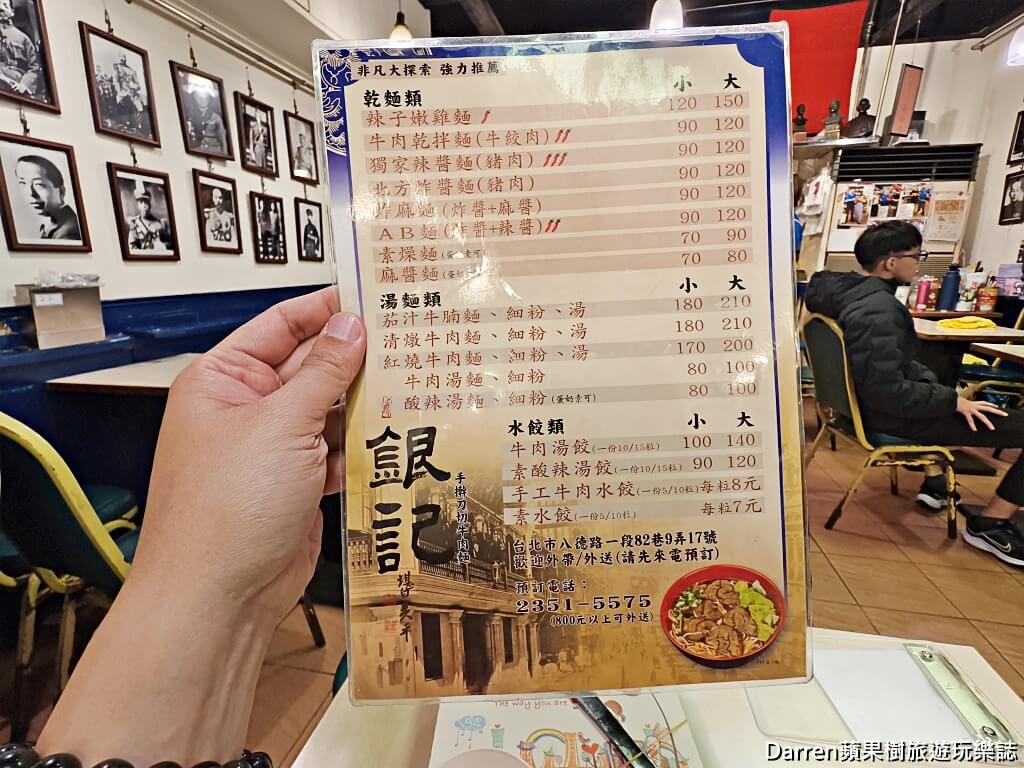 非凡大探索 強力推薦
乾麵類 小 大
辣子嫩雞麵 120 150
牛肉乾拌麵(牛絞肉) 90 120
獨家辣醬麵(豬肉) 90 120
北方炸醬麵(豬肉) 90 120
炸麻麵(炸醬+麻醬) 90 120
AB麵(炸醬+辣醬) 90 120
素燥麵(蛋奶素可) 70 90
麻醬麵(蛋奶素可) 70 80
湯麵類 小 大
茄汁牛腩麵、細粉、湯 180 210
清燉牛肉麵、細粉、湯 180 210
紅燒牛肉麵、細粉、湯 170 200
牛肉湯麵、細粉 80 100
酸辣湯麵、細粉(蛋奶素可) 80 100
水餃類 小 大
牛肉湯餃(一份10/15粒) 100 140
素酸辣湯餃(一份10/15粒) 90 120
手工牛肉水餃(一份5/10粒)每粒8元
素水餃(一份5/10粒) 每粒7元
銀記
手擀刀切牛肉麵
台北市八德路一段82巷9弄17號
歡迎外帶/外送(請先來電預訂)
預訂電話：
2351-5575
(800元以上可外送)
The way you are
Darren蘋果樹旅遊玩樂誌